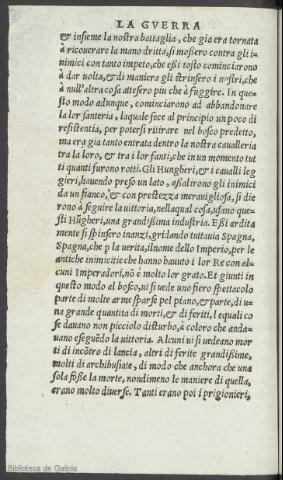 LA GVERRA
& insieme la nostra battaglia, che gia era tornata
à ricouerare la mano dritta, si mossero contra gli i-
nimici con tanto impeto, che essi tosto cominciarono
à dar uolta, & di maniera gli strinsero i nostri, che
à null'altra cosa attesero piu che à fuggire. In que-
sto modo adunque, cominciarono ad abbandonare
la lor fanteria, laquale fece al principio un poco di
resistentia, per potersi ritirare nel bosco predetto,
ma era gia tanto entrata dentro la nostra caualleria
tra la loro, & tra i lor fanti, che in un momento tut
ti quanti furono rotti. Gli Hungheri, & i caualli leg
gieri, hauendo preso un lato, assalirono gli inimici
da un fianco, & con prestezza merauigliosa, si die
rono à seguire la uittoria, nellaqual cosa, usano que-
sti Hũgheri, una grandissima industria. Essi ardita
mente si spinsero inanzi, gridando tuttauia Spagna,
Spagna, che p la uerità, il nome dello Imperio, per le
antiche inimicitie che hanno hauuto i lor Re con al-
cuni Imperadori, nõ è molto lor grato. Et giunti in
questo modo al bosco, ui si uede uno fiero spettacolo
parte di molte arme sparse pel piano, & parte, di u-
na grande quantita di morti, & di feriti, lequali co
se dauano non picciolo disturbo, à coloro che anda-
uano eseguẽdo la uittoria. Alcuni ui si uedeano mor
ti di incõtro di lancia, altri di ferite grandissime,
molti di archibusiate, di modo che anchora che una
sola fosse la morte, nondimeno le maniere di quella,
erano molto diuerse. Tanti erano poi i prigionieri,
Biblioteca de Galicia